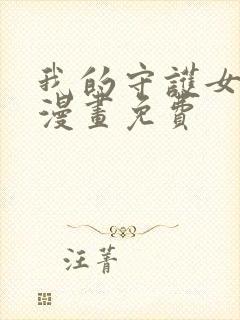 我的守護女
漫畫免費
汪菁